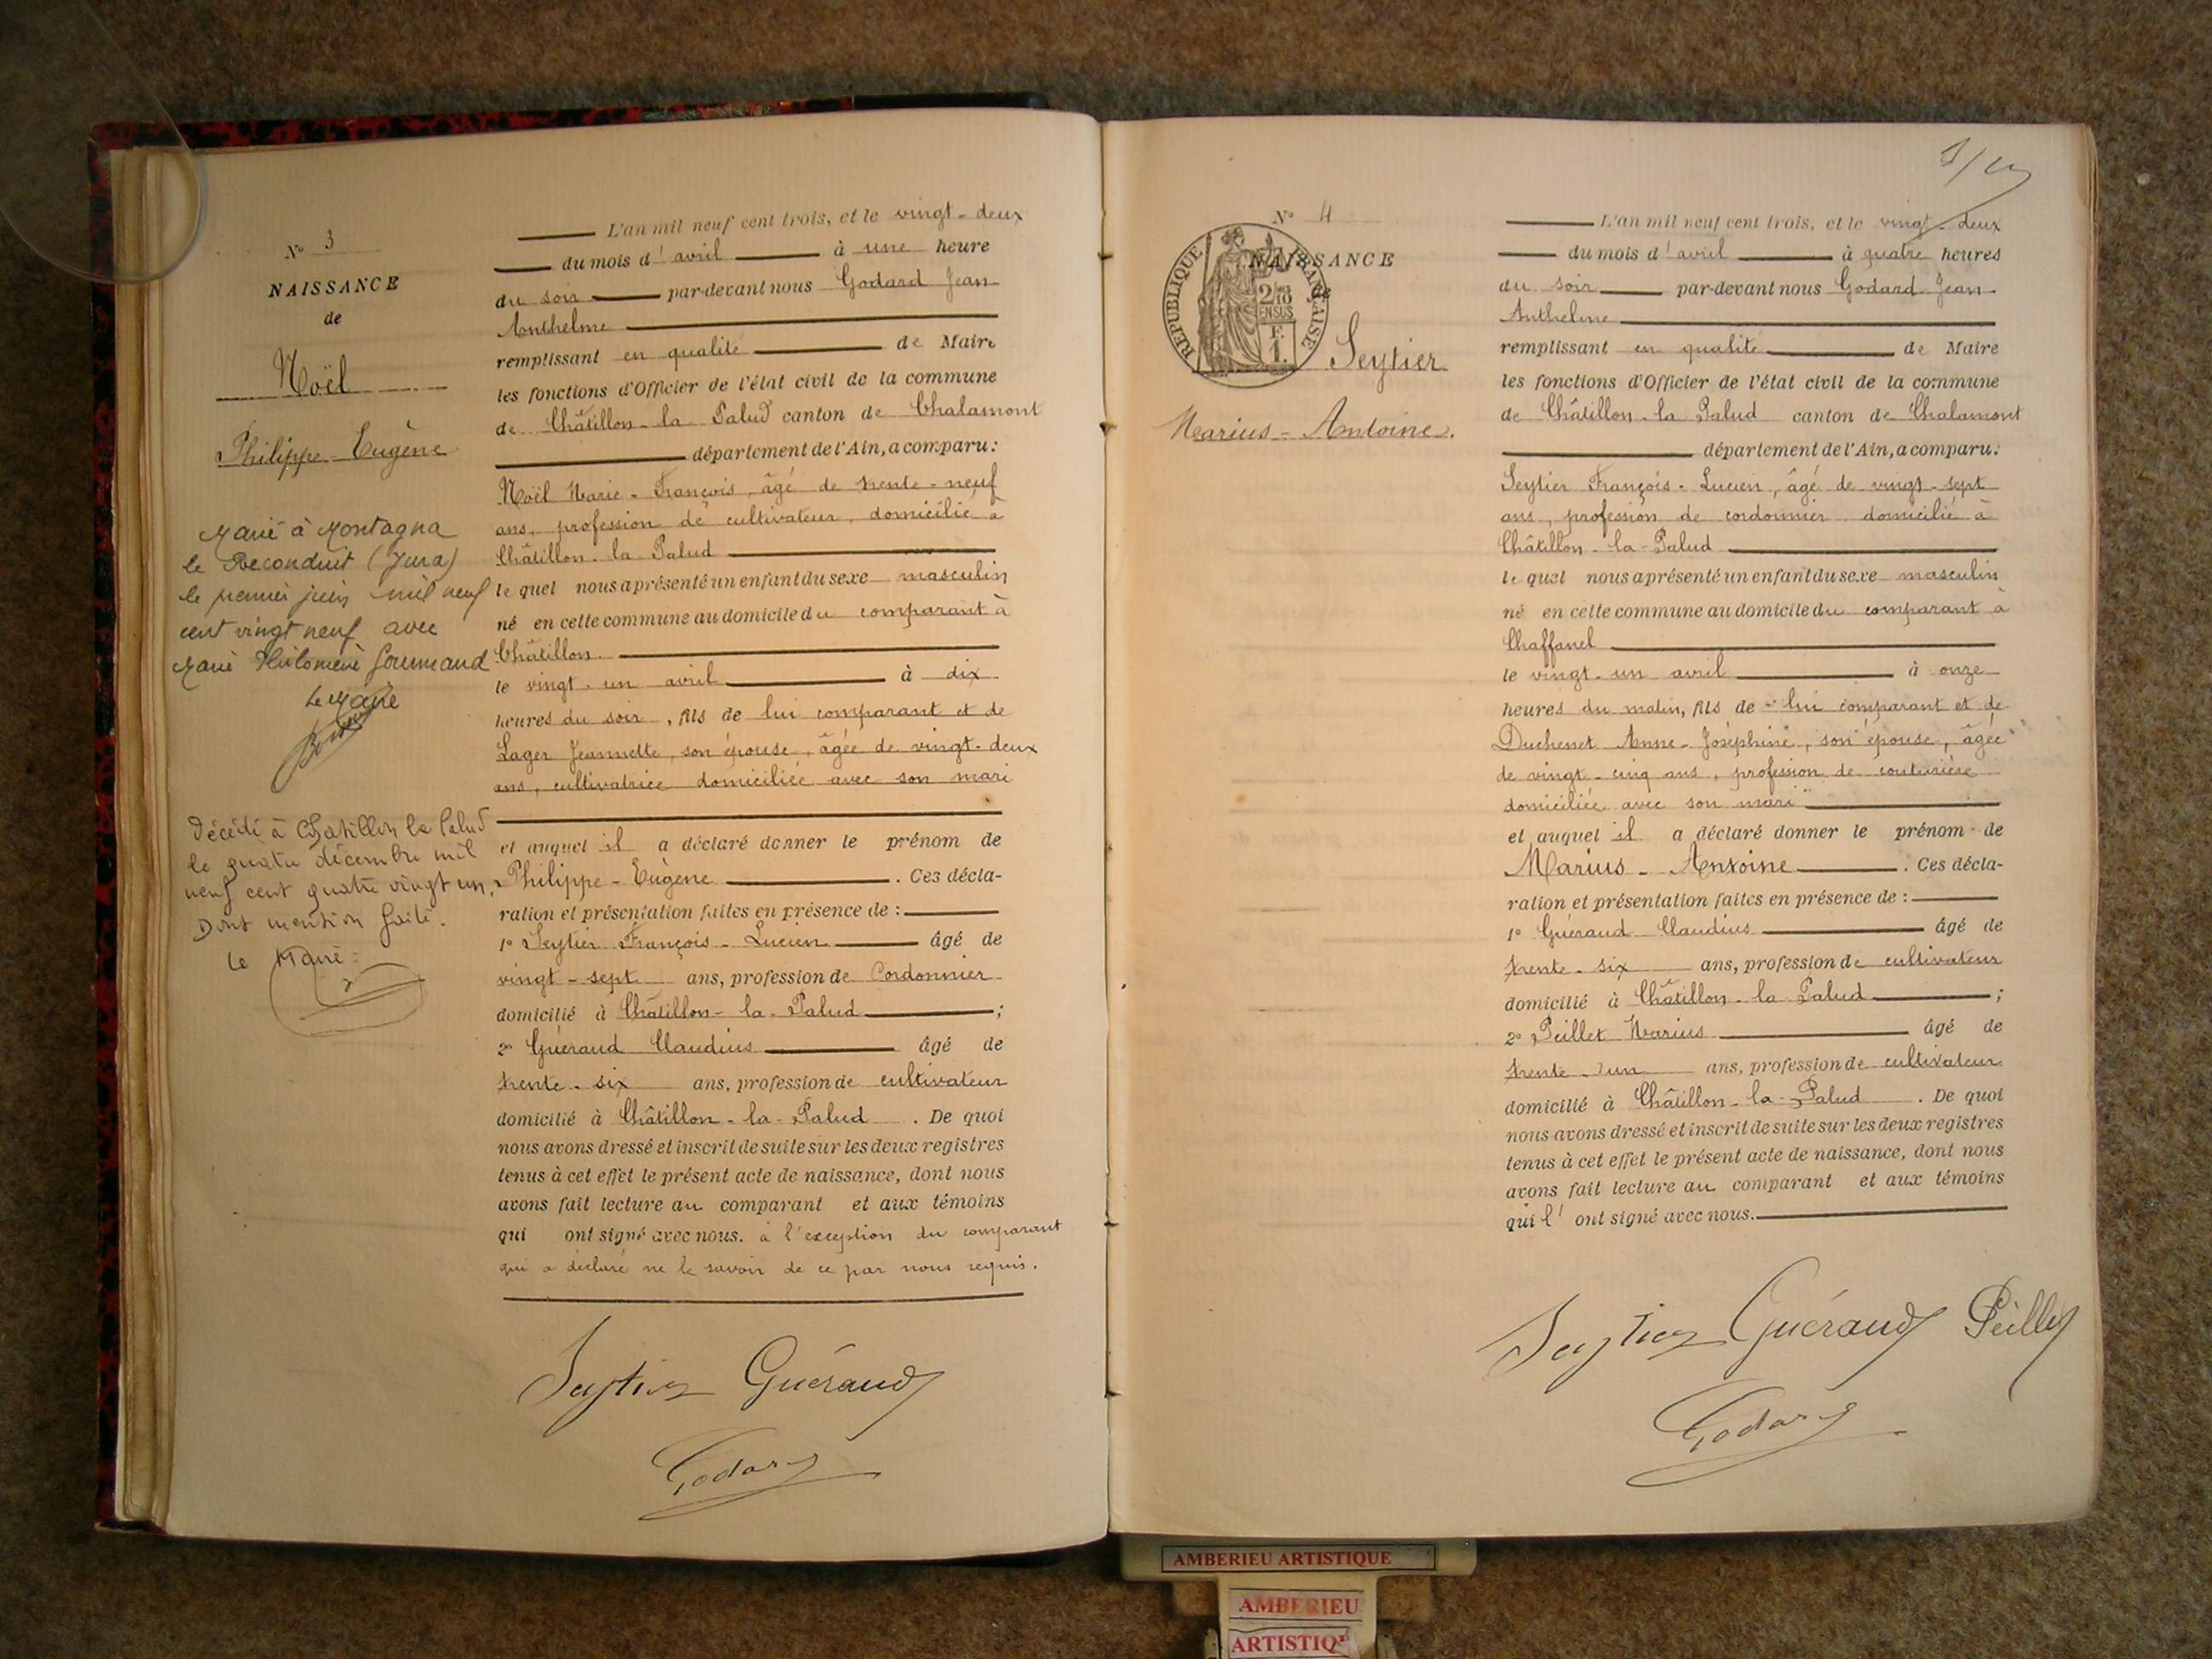 N° 3
NAISSANCE
de
Noël
Philippe-Eugène
Marié à Montagna
le Reconduit (Jura)
le premier juin mil neuf
cent vingt neuf avec
Marie Philomène Gourmand
Le Maire
Décédé à Chatillon la Palud
le quatre décembre mil
neuf cent quatre vingt un.
Dont mention faite.
Le Maire:
L'an mil neuf cent trois, et le vingt-deux
du mois d'avril à une heure
du soir par-devant nous Godard Jean
Anthelme
remplissant en qualité de Maire
les fonctions d'Officier de l'état civil de la commune
de Châtillon-la Palud canton de Chalamont
département de l'Ain, a comparu:
Noël Marie-François, âgé de trente-neuf
ans, profession de cultivateur, domicilié à
Châtillon-la Palud
le quel nous a présenté un enfant du sexe masculin
né en cette commune au domicile du comparant à
Châtillon
le vingt-un avril à dix
heures du soir, fils de lui comparant et de
Lager Jeannette, son épouse, âgée de vingt-deux
ans, cultivatrice domiciliée avec son mari
et auquel il a déclaré donner le prénom de
Philippe-Eugène. Ces décla-
ration et présentation faites en présence de :
1° Seytier François-Lucien âgé de
vingt-sept ans, profession de Cordonnier
domicilié à Châtillon-la-Palud ;
2° Guéraud Claudius âgé de
trente-six ans, profession de cultivateur
domicilié à Châtillon-la-Palud. De quoi
nous avons dressé et inscrit de suite sur les deux registres
tenus à cet effet le présent acte de naissance, dont nous
avons fait lecture au comparant et aux témoins
qui ont signé avec nous. à l'exception du comparant
qui a déclaré ne le savoir de ce par nous requis.
Seytier Guéraud
Godard
N° 4
NAISSANCE
de
RÉPUBLIQUE FRANÇAISE
2/10
EN SUS
F.
1.
Seytier
Marius-Antoine.
L'an mil neuf cent trois, et le vingt-deux
du mois d'avril à quatre heures
du soir par-devant nous Godard Jean
Anthelme
remplissant en qualité de Maire
les fonctions d'Officier de l'état civil de la commune
de Châtillon-la Palud canton de Chalamont
département de l'Ain, a comparu:
Seytier François-Lucien, âgé de vingt-sept
ans, profession de cordonnier domicilié à
Châtillon-la-Palud
le quel nous a présenté un enfant du sexe masculin
né en cette commune au domicile du comparant à
Chaffanel
le vingt-un avril à onze
heures du matin, fils de lui comparant et de
Duchenet Anne-Joséphine, son épouse, âgée
de vingt-cinq ans, profession de couturière
domiciliée avec son mari
et auquel il a déclaré donner le prénom de
Marius-Antoine. Ces décla-
ration et présentation faites en présence de :
1° Guéraud Claudius âgé de
trente-six ans, profession de cultivateur
domicilié à Châtillon-la-Palud ;
2° Peillet Marius âgé de
trente-un ans, profession de cultivateur
domicilié à Châtillon-la-Palud. De quoi
nous avons dressé et inscrit de suite sur les deux registres
tenus à cet effet le présent acte de naissance, dont nous
avons fait lecture au comparant et aux témoins
qui l'ont signé avec nous.
Seytier Guéraud Peillet
Godard
AMBERIEU ARTISTIQUE
AMBERIEU
ARTISTIQ